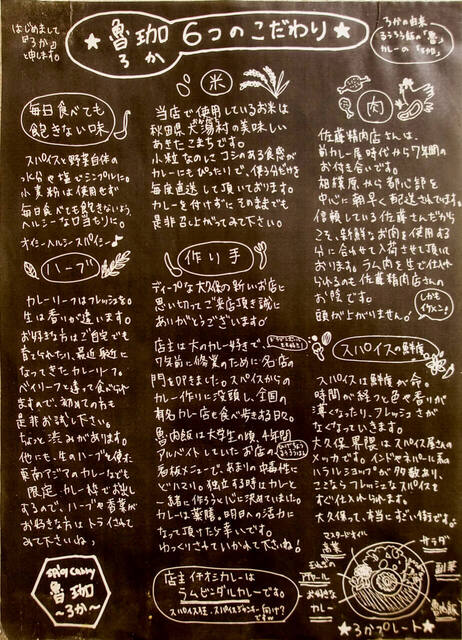 はじめまして
『ろか』
と申します。
★ 魯珈 6つのこだわり ★
ろか
ろかの由来
るうろう飯の「魯」
カレーの「珈」
毎日食べても
飽きない味
スパイスと野菜自体の
水分や塩でシンプルに。
小麦粉は使用せず
毎日食べても飽きないよう、
ヘルシーな口当りに。
オイシーヘルシースパイシー♪
ハーブ
カレーリーフはフレッシュを。
生は香りが違います。
お好きな方はご自宅でも
育てられたり、最近身近に
なってきたカレーリーフ。
ベイリーフと違って食べられ
ますので、初めての方も
是非お試し下さい。
ちょっと渋みがあります。
他にも、生のハーブを使った
東南アジアのカレーなども
限定カレー枠でお出し
するので、ハーブや香菜が
お好きな方はトライされて
みて下さいね♪
spicy curry
魯珈
〜ろか〜
米
当店で使用しているお米は
秋田県大潟村の美味しい
あきたこまちです。
小粒なのにコシのある食感が
カレーにもぴったりで、使う分だけを
毎度直送して頂いております。
カレーを付けずにそのままでも
是非召し上がってみて下さい。
作り手
ディープな大久保の新しいお店に
思い切ってご来店頂き誠に
ありがとうございます!
店主は大のカレー好きで、
7年前に修業のために名店
の門を叩きました。スパイスからの
カレー作りに没頭し、全国の
有名カレー店を食べ歩きする日々。
魯肉飯は大学生の頃、4年間
アルバイトしていたお店の
看板メニューで、あまりの中毒性に
どハマり。独立する時はカレーと
一緒に作ろうと心に決めていました。
カレーは薬膳。明日への活力に
なって頂けたら幸いです。
ゆっくりされていかれて下さいね!
店主イチオシカレーは
ラムビンダルカレーです。
スパイス狂・スパイスジャンキー向け?
です☆
肉
佐藤精肉店さんは、
前カレー屋時代から7年間の
お付き合いです。
相模原から都心部を
中心に朝早く配送されています。
信頼している佐藤さんだから
こそ、新鮮なお肉を使用する
分に合わせて入荷させて頂いて
おります。ラム肉を生で仕入れ
られるのも佐藤精肉店さんの
お陰です。
頭が上がりません!
しかも
イケメン!
スパイスの鮮度
スパイスは鮮度が命。
時間が経つと色や香りが
薄くなったり、フレッシュさが
なくなっていきます。
大久保界隈はスパイス屋さんの
メッカです。インドやネパール系の
ハラルショップが多数あり、
いつもフレッシュなスパイスを
すぐ仕入れられます。
大久保って、本当にすごい街です。
マスタードオイル
高菜
サラダ
アチャール
副菜
お好きな
カレー
★ろかプレート★